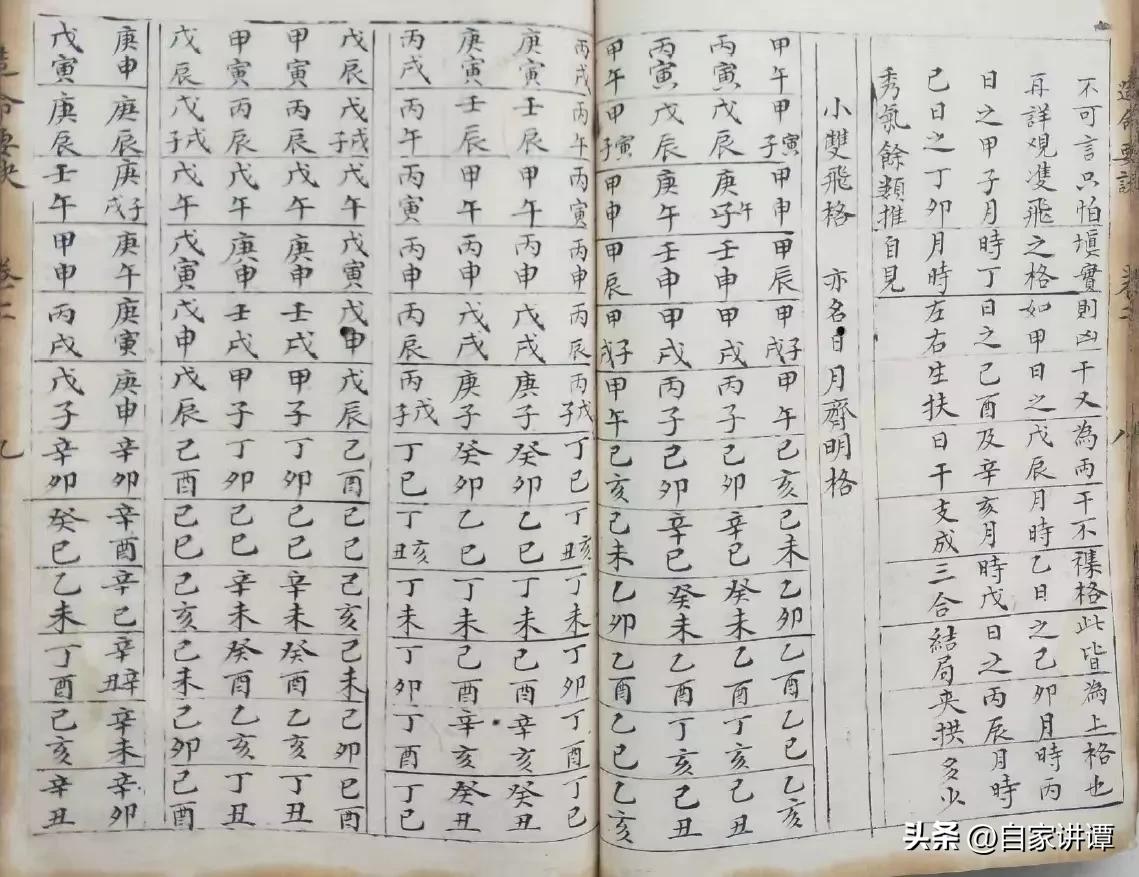 造命要訣 卷二 八
不可言只怕填實則凶干又為兩干不襍格此皆為上格也
再詳观隻飛之格如甲日之戊辰月時乙日之己卯月時丙
日之甲子月時丁日之己酉及辛亥月時戊日之丙辰月時
己日之丁卯月時左右生扶日干支成三合結局夹拱多少
秀氣餘類推自見
小雙飛格 亦名日月齊明格
甲午 甲子寅 甲申 甲辰 甲戌子 甲午 己亥 己未 乙卯 乙酉 乙巳 乙亥
丙寅 戊辰 庚午子 壬申 甲戌 丙子 己卯 辛巳 癸未 乙酉 丁亥 己丑
丙寅 戊辰 庚午 壬申 甲戌 丙子 己卯 辛巳 癸未 乙酉 丁亥 己丑
甲午 甲子寅 甲申 甲辰 甲戌子 甲午 己亥 己未 乙卯 乙酉 乙巳 乙亥
丙戌 丙午 丙寅 丙申 丙辰 丙子戌 丁巳 丁丑亥 丁未 丁卯 丁酉 丁巳
庚寅 壬辰 甲午 丙申 戊戌 庚子 癸卯 乙巳 丁未 己酉 辛亥 癸丑
庚寅 壬辰 甲午 丙申 戊戌 庚子 癸卯 乙巳 丁未 己酉 辛亥 癸丑
丙戌 丙午 丙寅 丙申 丙辰 丙子戌 丁巳 丁丑亥 丁未 丁卯 丁酉 丁巳
戊辰 戊子戌 戊午 戊寅 戊申 戊辰 己酉 己巳 己亥 己未 己卯 巳酉
甲寅 丙辰 戊午 庚申 壬戌 甲子 丁卯 己巳 辛未 癸酉 乙亥 丁丑
甲寅 丙辰 戊午 庚申 壬戌 甲子 丁卯 己巳 辛未 癸酉 乙亥 丁丑
戊辰 戊子戌 戊午 戊寅 戊申 戊辰 己酉 己巳 己亥 己未 己卯 己酉
庚申 庚辰 庚戌子 庚午 庚寅 庚申 辛卯 辛酉 辛巳 辛丑辛 辛未 辛卯
戊寅 庚辰 壬午 甲申 丙戌 戊子 辛卯 癸巳 乙未 丁酉 己亥 辛丑
头条 @自家讲谭